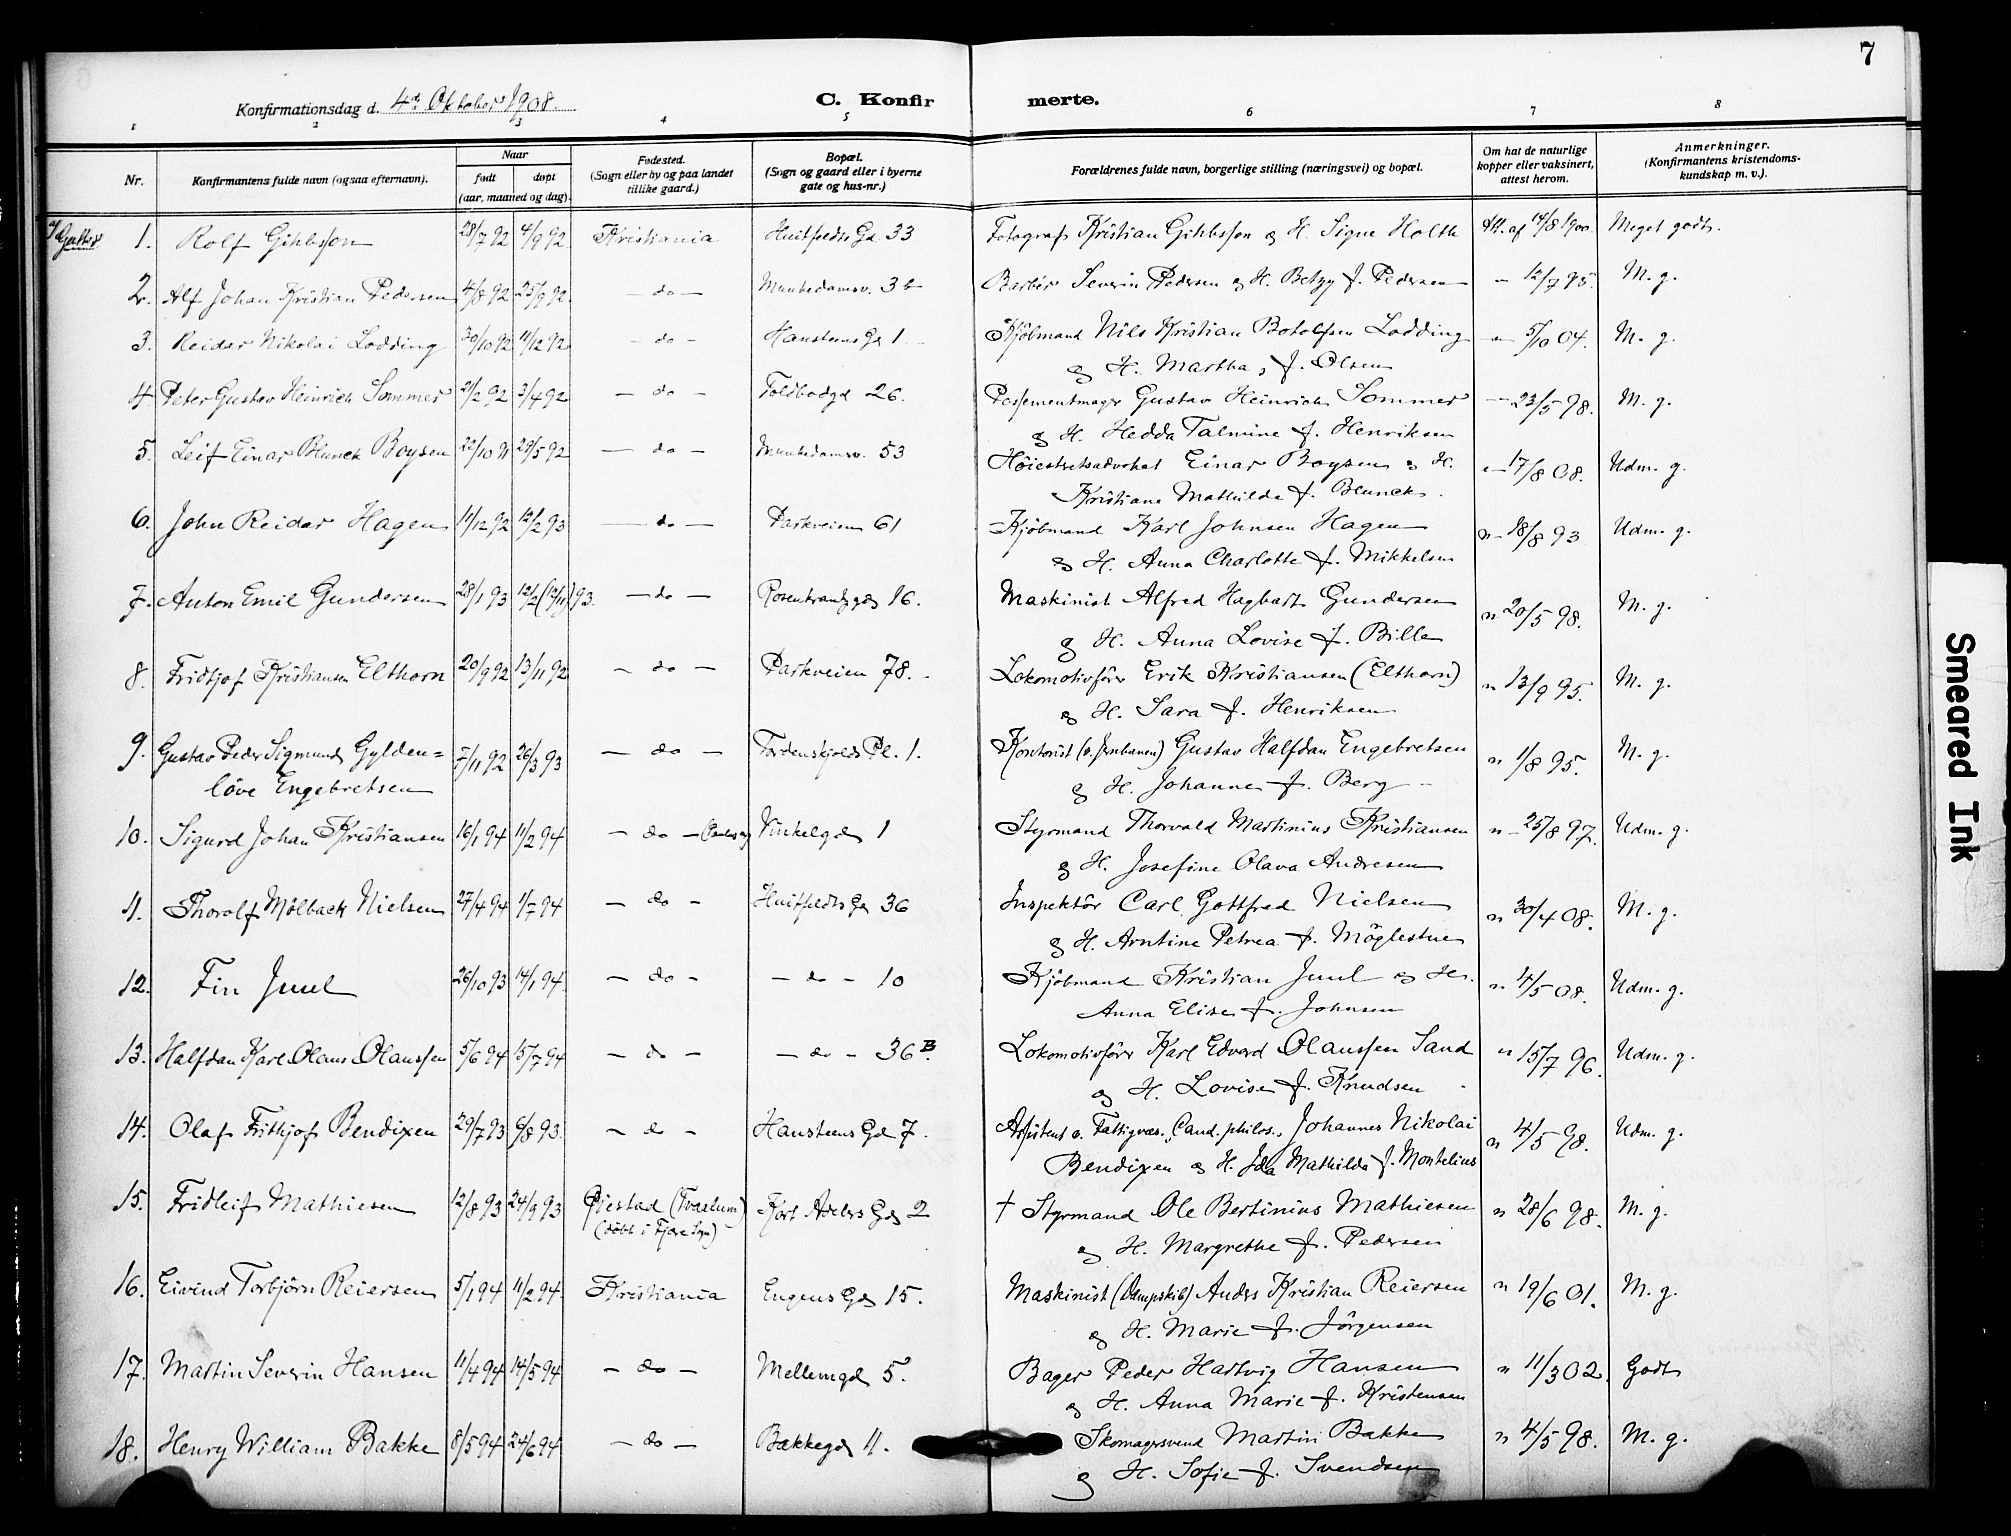 7
Konfirmationsdag d. 4de Oktober 1908.
C. Konfir merte.
1 2 3 4 5 6 7 8
Nr. Konfirmantens fulde navn (ogsaa efternavn). Naar født døpt (aar, maaned og dag). Fødested. (Sogn eller by og paa landet tillike gaard.) Bopæl. (Sogn og gaard eller i byerne gate og hus-nr.) Forældrenes fulde navn, borgerlige stilling (næringsvei) og bopæl. Om hat de naturlige kopper eller vaksinert, attest herom. Anmerkninger. (Konfirmantens kristendoms- kundskap m. v.).
Gutter 1. Rolf Gihbsson 28/7 92 4/9 92 Kristiania Huitfeldts Gd 33 Fotograf Kristian Gihbsson og H. Signe Holth Att. af 14/8 1900. Meget godt.
2. Alf Johan Kristian Pedersen 4/8 92 25/9 92 — do — Munkedamsv. 3b Barbér Severin Pedersen og H. Betzy f. Pedersen — 12/7 93. M. g.
3. Reidar Nikolai Lodding 30/10 92 11/12 92 — do — Hansteens Gd 1 Kjöbmand Nils Kristian Botolfsen Lodding — 5/10 04. M. g.
og H. Martha, f. Olsen
4. Peter Gustav Heinrich Sommer 21/2 92 3/4 92 — do — Toldbodgd 26. Possementmager Gustav Heinrich Sommer — 23/5 98. M. g.
og H. Hedda Talmine f. Henriksen
5. Leif Einar Blunck Boysen 22/10 91 29/5 92 — do — Munkedamsv. 53 Höiesteretsadvokat Einar Boysen og H. — 17/8 08. Udm. g.
Kristiane Mathilde f. Blunck.
6. John Reidar Hagen 14/12 92 12/2 93 — do — Parkveien 61 Kjöbmand Karl Johnsen Hagen " — 18/8 93 Udm. g.
og H. Anna Charlotte f. Mikkelsen
7. Anton Emil Gundersen 28/1 93 12/2 (12/11) 93. — do — Rosenkrantzgd 16. Maskinist Alfred Hagbart Gundersen " 20/5 98. M. g.
og H. Anna Lovise f. Bille
8. Fridtjof Kristiansen Elthorn 20/9 92 13/11 92 — do — Parkveien 78. Lokomotivförer Erik Kristiansen (Elthorn) " 13/9 95. M. g.
og H. Sara f. Henriksen
9. Gustav Peder Sigmund Gylden= 7/11 92 26/3 93 — do — Tordenskjolds Pl. 1. Kontorist (v. Jernbanen) Gustav Halfdan Engebretsen " 1/8 95. M. g.
löve Engebretsen og H. Johanne f. Berg
10. Sigurd Johan Kristiansen 16/1 94 11/2 94 — do — Vinkelgd 1 Styrmand Thorvald Martinius Kristiansen " — 25/8 97. Udm. g.
og H. Josefine Olava Andresen
11. Thorolf Mölback Nielsen 27/4 94 1/7 94 — do — Huitfeldts Gd 36 Inspektör Carl Gottfred Nielsen " 30/4 08. M. g.
og H. Arntine Petrea f. Möglestue
12. Fin Juul 26/10 93 14/1 94. — do — — do — 10 Kjöbmand Kristian Juul og H. " 4/5 08. Udm. g.
Anna Elise f. Johnsen
13. Halfdan Karl Olaus Olaussen 5/6 94 15/7 94 — do — — do — 36 B. Lokomotivförer Karl Edvard Olaussen Sand " 15/7 96. Udm. g.
og H. Lovise f. Knudsen
14. Olaf Frithjof Bendixen 29/7 93 6/8 93. — do — Hansteens Gd 7. Assistent v. Fattigvæs., Cand. philos., Johannes Nikolai " 4/5 98. Udm. g.
Bendixen og H. Ida Mathilde f. Montelius
15. Fridleif Mathiesen 12/8 93 24/9 93 Öiestad (Tvælum) Kort Adelers Gd 2 † Styrmand Ole Bertinius Mathiesen " 28/6 98. M. g.
(döbt i Fjære Sogn) og H. Margrethe f. Pedersen
16. Eivind Torbjörn Reiersen 5/1 94 11/2 94. Kristiania Eugenes Gd 15. Maskinist (Dampskib) Anders Kristian Reiersen " 19/6 01. M. g.
og H. Marie f. Jörgensen
17. Martin Severin Hansen 11/4 94 14/5 94 — do — Mellemgd 5. Bager Peder Hartvig Hansen " 11/3 02. Godt
og H. Anna Marie f. Kristensen
18. Henry William Bakke 8/5 94 24/6 94 — do — Bakkegd 11. Skomagersvend Martin Bakke " 4/5 98. M. g.
og H. Sofie f. Svendsen
Smeared Ink